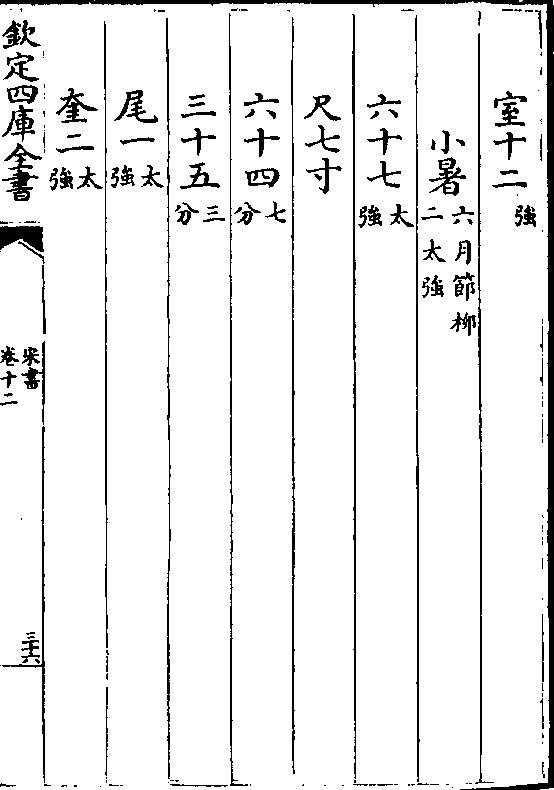 室十二強
小暑六月節柳二太強
六十七太強
尺七寸
六十四七分
三十五三分
尾一太強
奎二太強
欽定四庫全書
宋書
卷十二
三十六